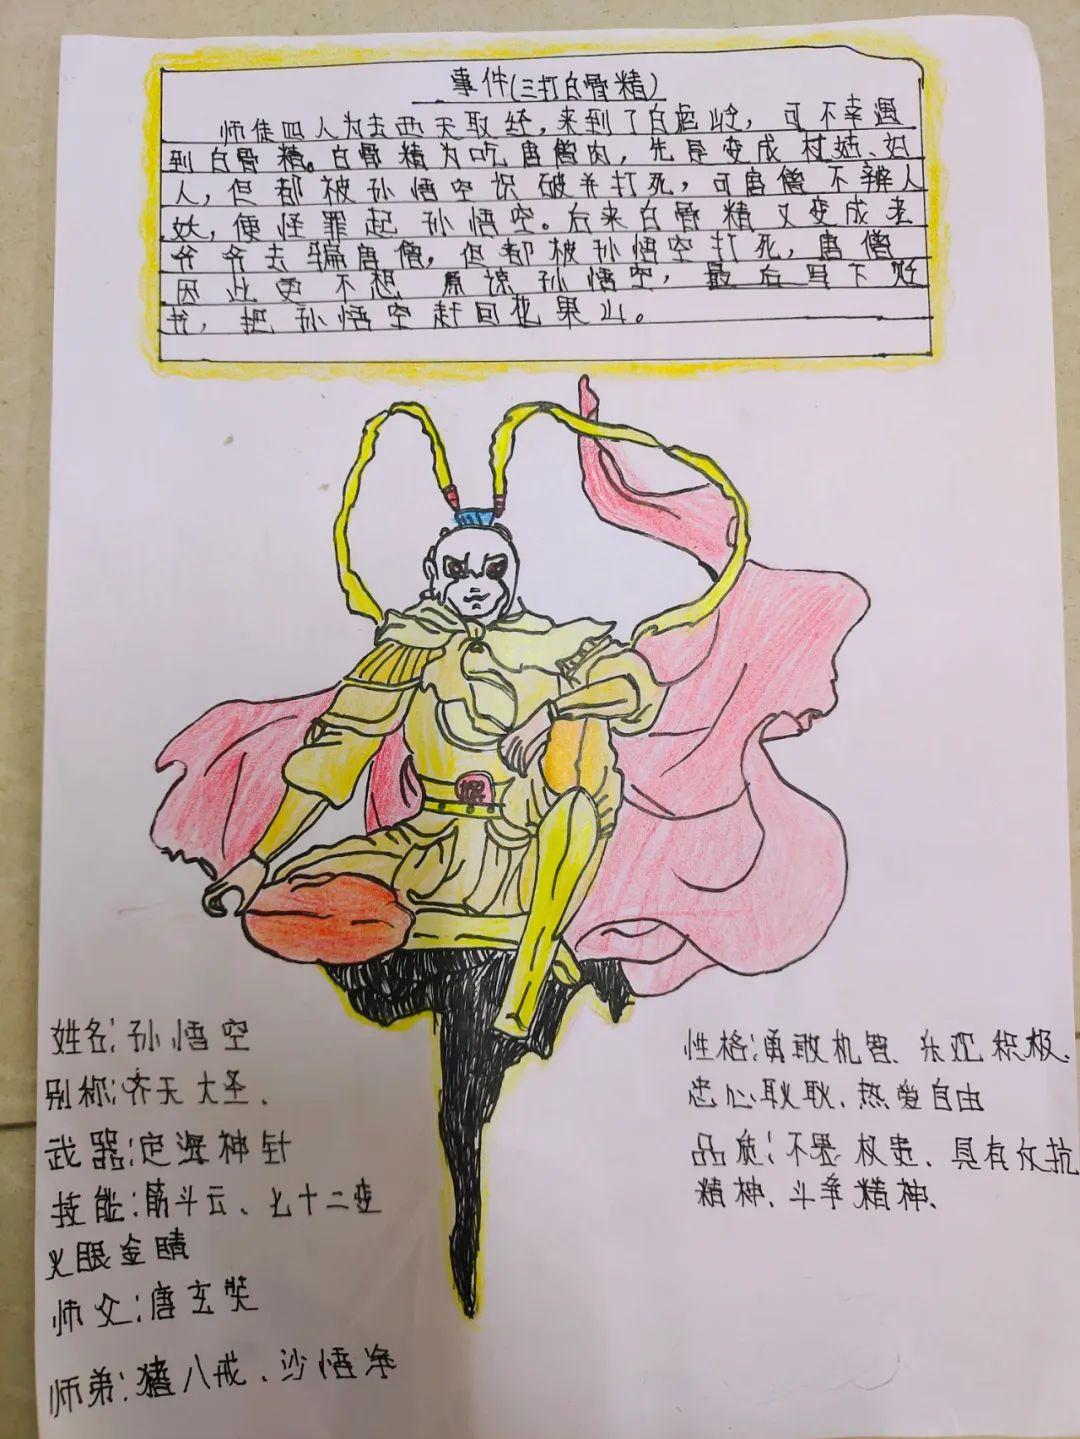 事件(三打白骨精)
师徒四人为去西天取经,来到了白虎岭,可不幸遇
到白骨精。白骨精为吃唐僧肉,先是变成村姑、妇
人,但都被孙悟空识破并打死,可唐僧不辨人
妖,便怪罪起孙悟空。后来白骨精又变成老
爷爷去骗唐僧,但都被孙悟空打死,唐僧
因此更不想原谅孙悟空,最后写下贬
书,把孙悟空赶回花果山。
姓名:孙悟空
别称:齐天大圣、
武器:定海神针
技能:筋斗云、七十二变
火眼金睛
师父:唐玄奘
师弟:猪八戒、沙悟净
性格:勇敢机智、乐观积极、
忠心耿耿、热爱自由
品质:不畏权贵、具有反抗
精神、斗争精神、